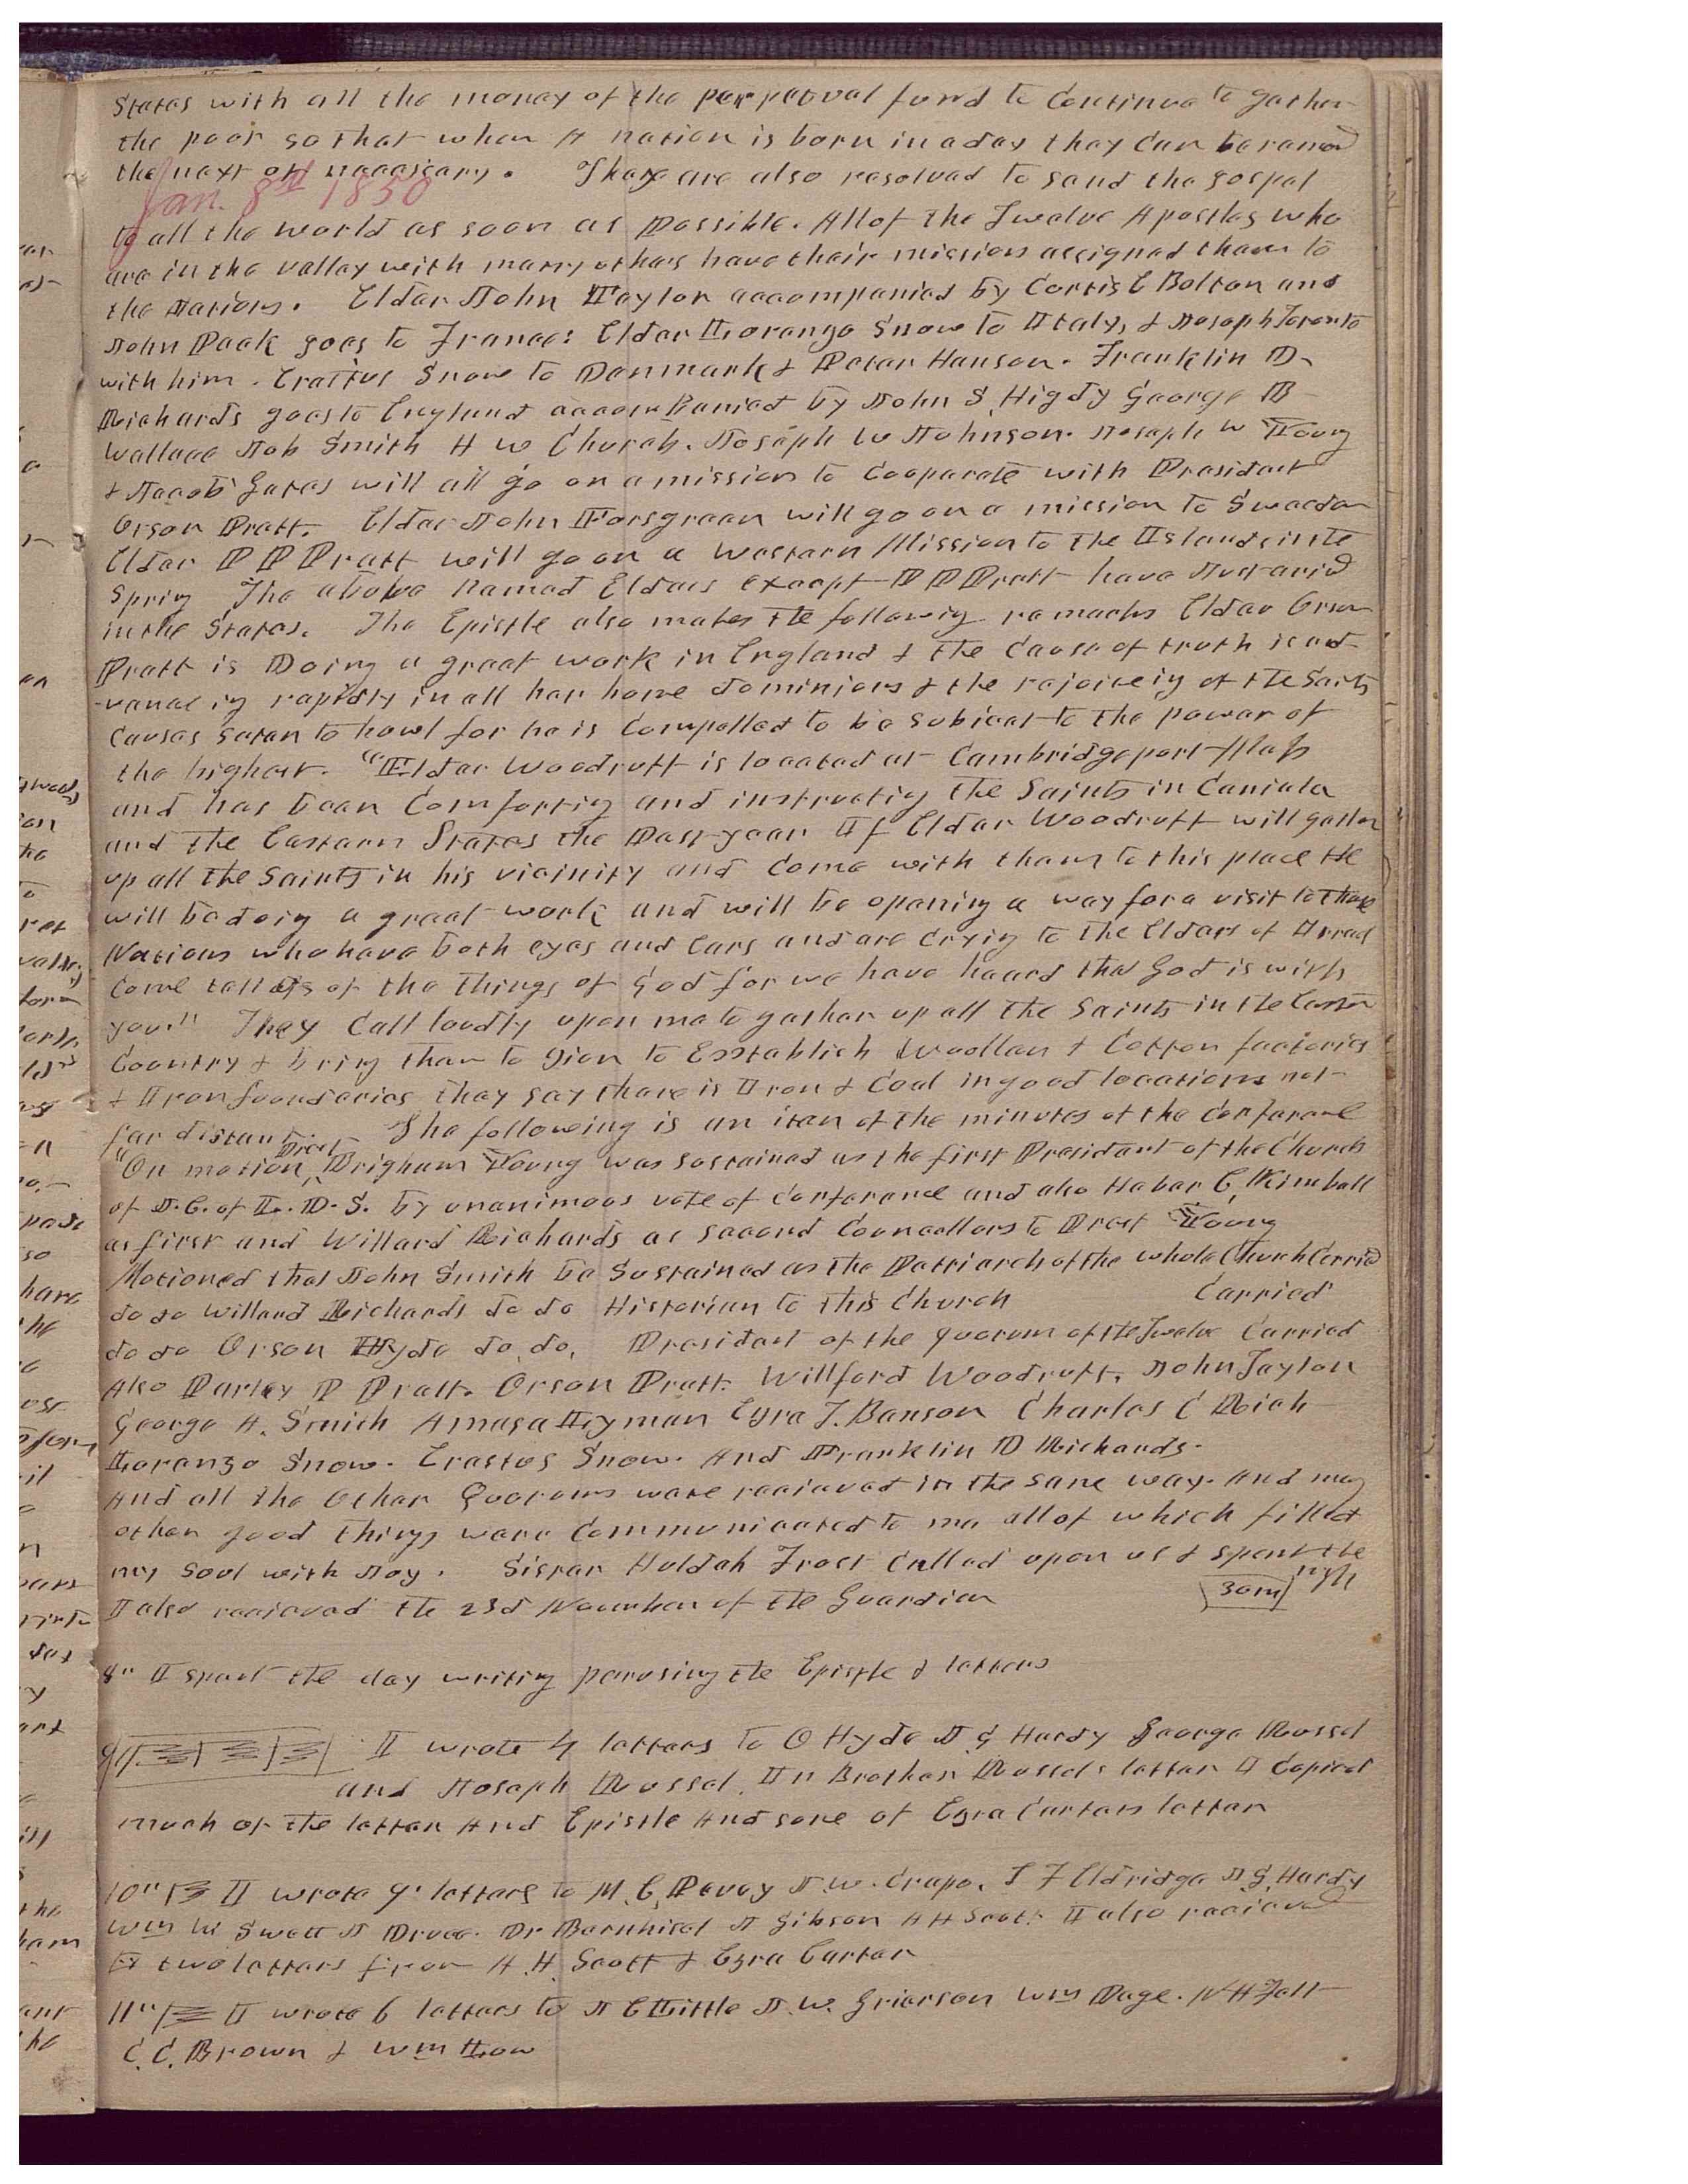 States with all the money of the perpetual fund to Continue to gather
the poor so that when A nation is born in a day they Can be
the next if necessary. They are also resolved to send the gospel
Jan. 8th 1850
to all the world as soon as Possible. All of the Twelve Apostles who
are in the valley with many others have their mission assigned them to
the Nations. Elder John Taylor accompanied by Curtis E Bolton and
John Pack goes to France: Elder Lorenzo Snow to Italy, & Joseph Toronto
with him. Erastus Snow to Denmark & Peter Hanson. Franklin D
Richards goes to England accompanied by John S Higby George B
Wallace Job Smith H W Church. Joseph W Johnson. Joseph W Young
& Jacob Gates will all go on a mission to Cooperate with President
Orson Pratt. Elder John Forsgreen will go on a mission to Sweeden
Elder P P Pratt will go on a Western Mission to the Islands in the
Spring The above Named Elders except P P Pratt have Just arivd
in the States. The Epistle also makes the following remarks Elder Orson
Pratt is Doing a great work in England & the Cause of truth is ad-
-vancing rapidly in all her home dominions & the rejoiceing of the Saints
Causes satan to howl for he is Compelled to be subject to the power of
the highest. "Elder Woodruff is located at Cambridgeport Mass
and has been Comforting and instructing the Saints in Canida
and the Eastern States the Past year If Elder Woodruff will gather
up all the Saints in his vicinity and Come with them to this place He
will be doing a great work and will be opening a way for a visit to those
Nations who have both eyes and Ears and are Crying to the Elders of Israel
Come tell us of the things of God for we have heard that God is with
you." They Call loudly upon me to gather up all the Saints in the Eastern
Country & bring them to Zion to Esstablish Woollen & Cotton factories
& Iron founderies they say there is Iron & Coal in good locations not
far distant. The following is an item of the minutes of the Conferance
"On motion, Prest Brigham Young was sustained as the first President of the Church
of J. C. of L. D. S. by unanimous vote of Conferance and also Heber C, Kimball
as first and Willard Richards as second Councellors to Prest Young
Motioned that John Smith be Sustained as the Patriarch of the whole Church Carrid
do do Willard Richards do do Historian to this Church Carried
do do Orson Hyde do, do, President of the quorum of the Twelve Carried
Also Parley P Pratt. Orson Pratt. Willford Woodruff, John Taylor
George A. Smith Amasa Lyman Ezra T. Benson Charles C Rich
Lorenzo Snow. Erastus Snow. And Franklin D Richards.
And all the Other Quorums ware received in the same way. And many
other good things ware Communicated to me all of which filled
my soul with Joy. Sister Huldah Frost Called upon us & spent the
night
I also received the 23d Number of the Guardian 30 m
8" I spent the day writing perusing the Epistle & letters
9" I wrote 4 letters to O Hyde J. G Hardy George Russel
and Joseph Russel. In Brother Russels letter I Copied
much of the letter And Epistle And some of Ezra Carters letter
10" I wrote 9 letters to M. C, Davey J. W. Crapo. L F Eldridge J G, Hardy
Wm W Swett J Druce. Dr Bernhisel J Gibson A H Scott I also received
two letters from A. H. Scott & Ezra Carter
11" I wrote 6 letters to J C Little J. W. Grierson Wm Page. N H Felt
C. C. Brown & Wm Low